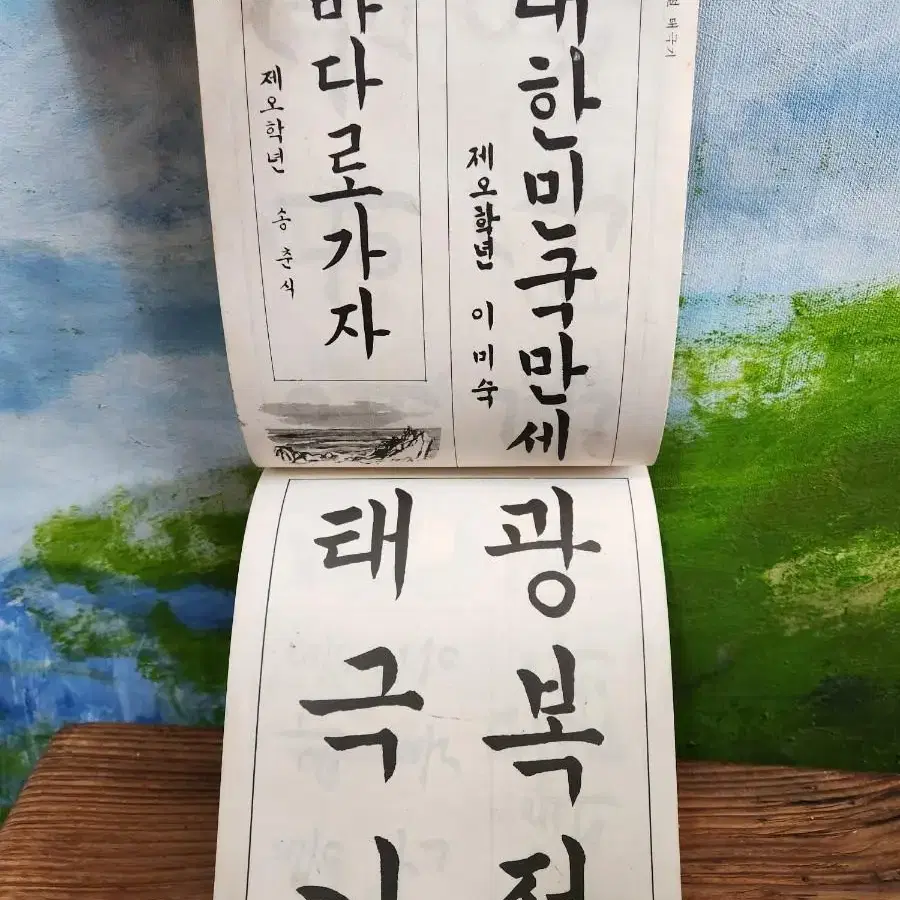 대한민국만세
제오학년 이미숙
바다로가자
제오학년 송춘식
광복절
태극기